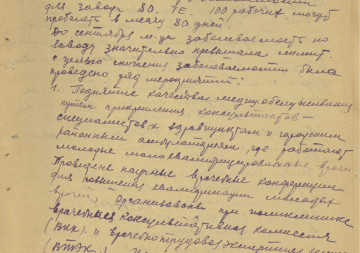 для завода 80. Т.Е. 100 рабочих могут
проболеть в месяц 80 дней.
До сентября м-ца заболеваемость по
заводу значительно превышала лимит.
С целью снижения заболеваемости было
проведено ряд мероприятий:
1. Поднятие качества медицинского обслуживания
путем прикрепления консультантов-
специалистов к здравпунктам и городским
районным амбулаториям, где работают
молодые малоквалифицированные врачи
Проведение научные врачебные конференции
для повышения квалификации молодых
врачей, организована при поликлинике
врачебная консультативная комиссия
(ВКК) и врачебно-трудовая экспертная
(ВТЭК).